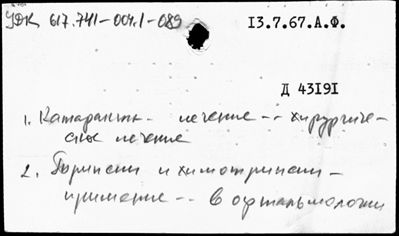 УДК 617.741-004.1-089
13.7.67.А.Ф.
Д 43191
1. Катаракта - лечение -- хирургиче-
ское лечение
2. Трипсин и химотрипсин -
применение -- в офтальмологии